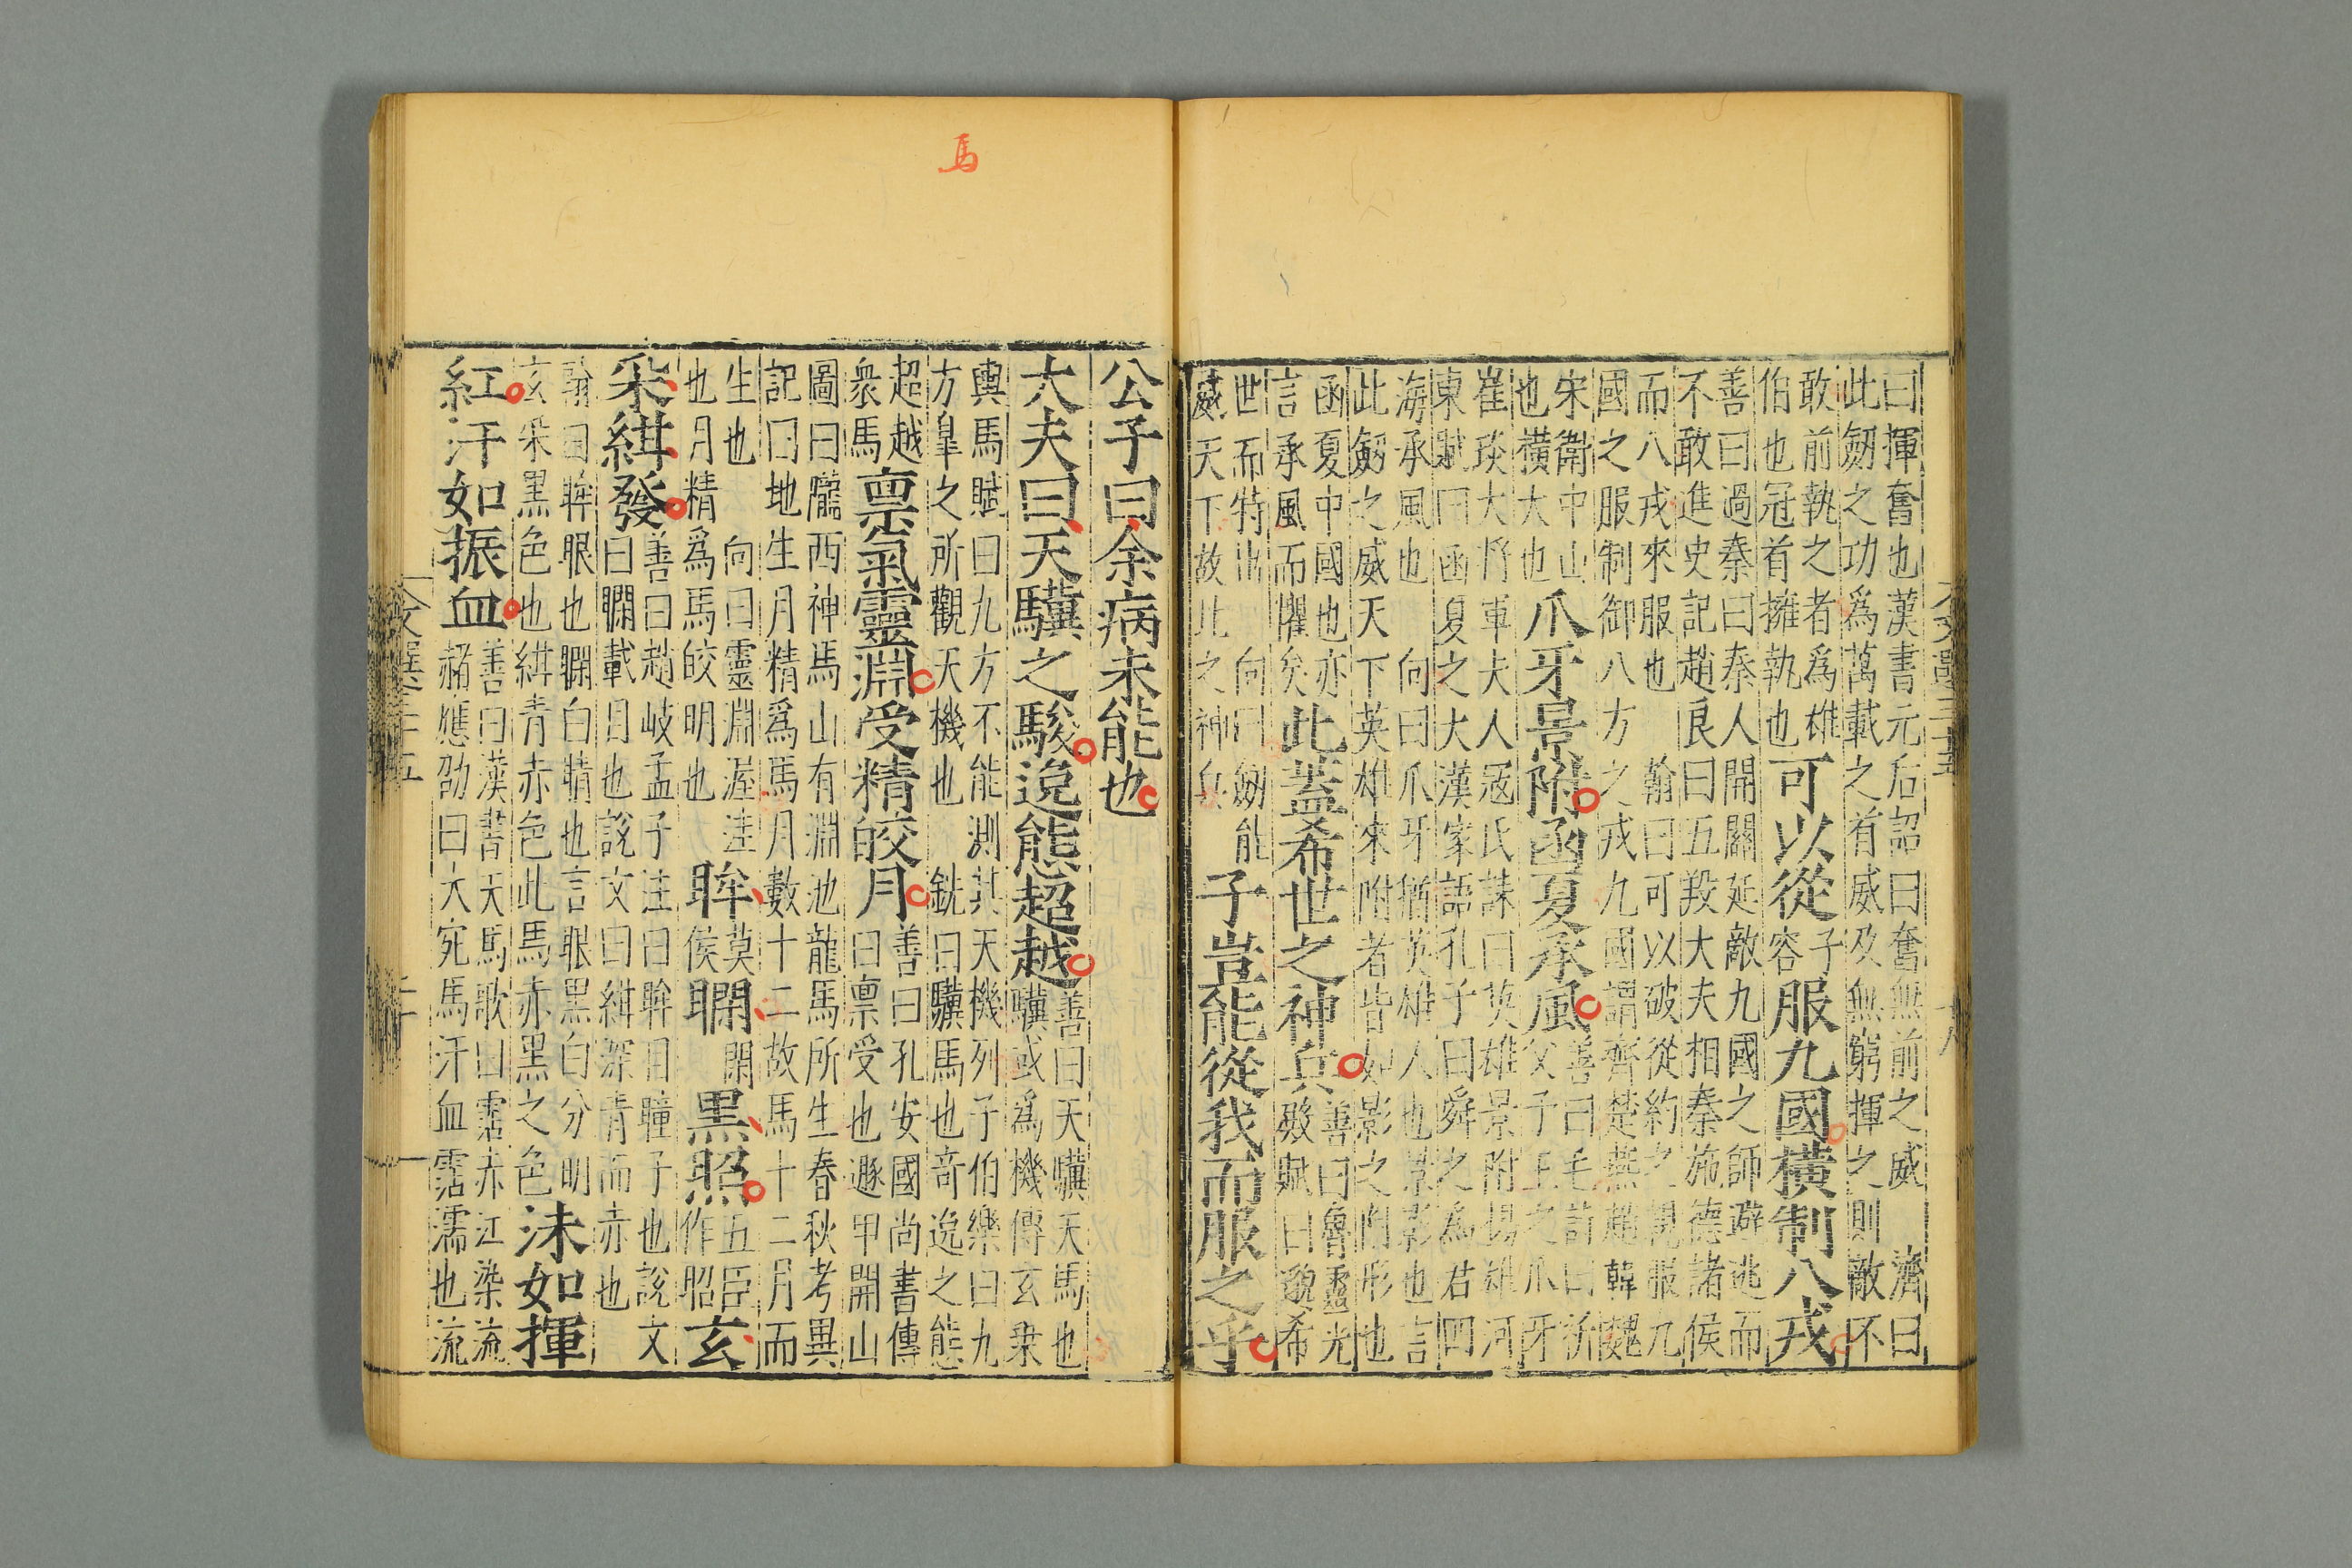 曰揮奮也漢書元后詔曰奮無前之威 濟曰
此劒之功爲萬載之有威及無窮揮之則敵不
敢前執之者爲雄
伯也冠首擁執也
可以從子容服九國橫制八戎
善曰過秦曰秦人開關延敵九國之師避逃而
不敢進史記趙良曰五羖大夫相秦施德諸侯
而八戎來服也 翰曰可以破從約之親服九
國之服制御八方之戎九國謂齊楚燕趙韓魏
宋衛中山
也橫大也
爪牙景附函夏承風
善曰毛詩曰祈
父予王之爪牙
崔琰大將軍夫人寇氏誄曰英雄景附揚雄河
東賦曰函夏之大漢家語孔子曰舜之爲君四
海承風也 向曰爪牙猶英雄人也景影也言
此劒之威天下英雄來附者皆如影之附形也
函夏中國也亦
言承風而懼矣
此蓋希世之神兵
善曰魯靈光
殿賦曰邈希
世而特出 向曰劒能
威天下故此之神兵
子豈能從我而服之乎
馬
公子曰余病未能也
大夫曰天驥之駿逸態超越
善曰天驥天馬也
驥或爲機傅玄乗
輿馬賦曰九方不能測其天機列子伯樂曰九
方臯之所觀天機也 銑曰驥馬也竒逸之態
超越
衆馬
禀氣靈淵受精皎月
善曰孔安國尚書傳
曰禀受也遯甲開山
圖曰隴西神馬山有淵池龍馬所生春秋考異
記曰地生月精爲馬月數十二故馬十二月而
生也 向曰靈淵渥洼
也月精爲馬皎明也
眸莫侯瞷閑黒照五臣作昭玄
采紺發
善曰趙岐孟子注曰眸目瞳子也說文
曰瞷戴目也說文曰紺深青而赤也
翰曰眸眼也瞷白睛也言眼黒白分明
玄采黒色也紺青赤色此馬赤黒之色
沬如揮
紅汗如振血
善曰漢書天馬歌曰霑赤汗沬流
赭應劭曰大宛馬汗血霑濡也流